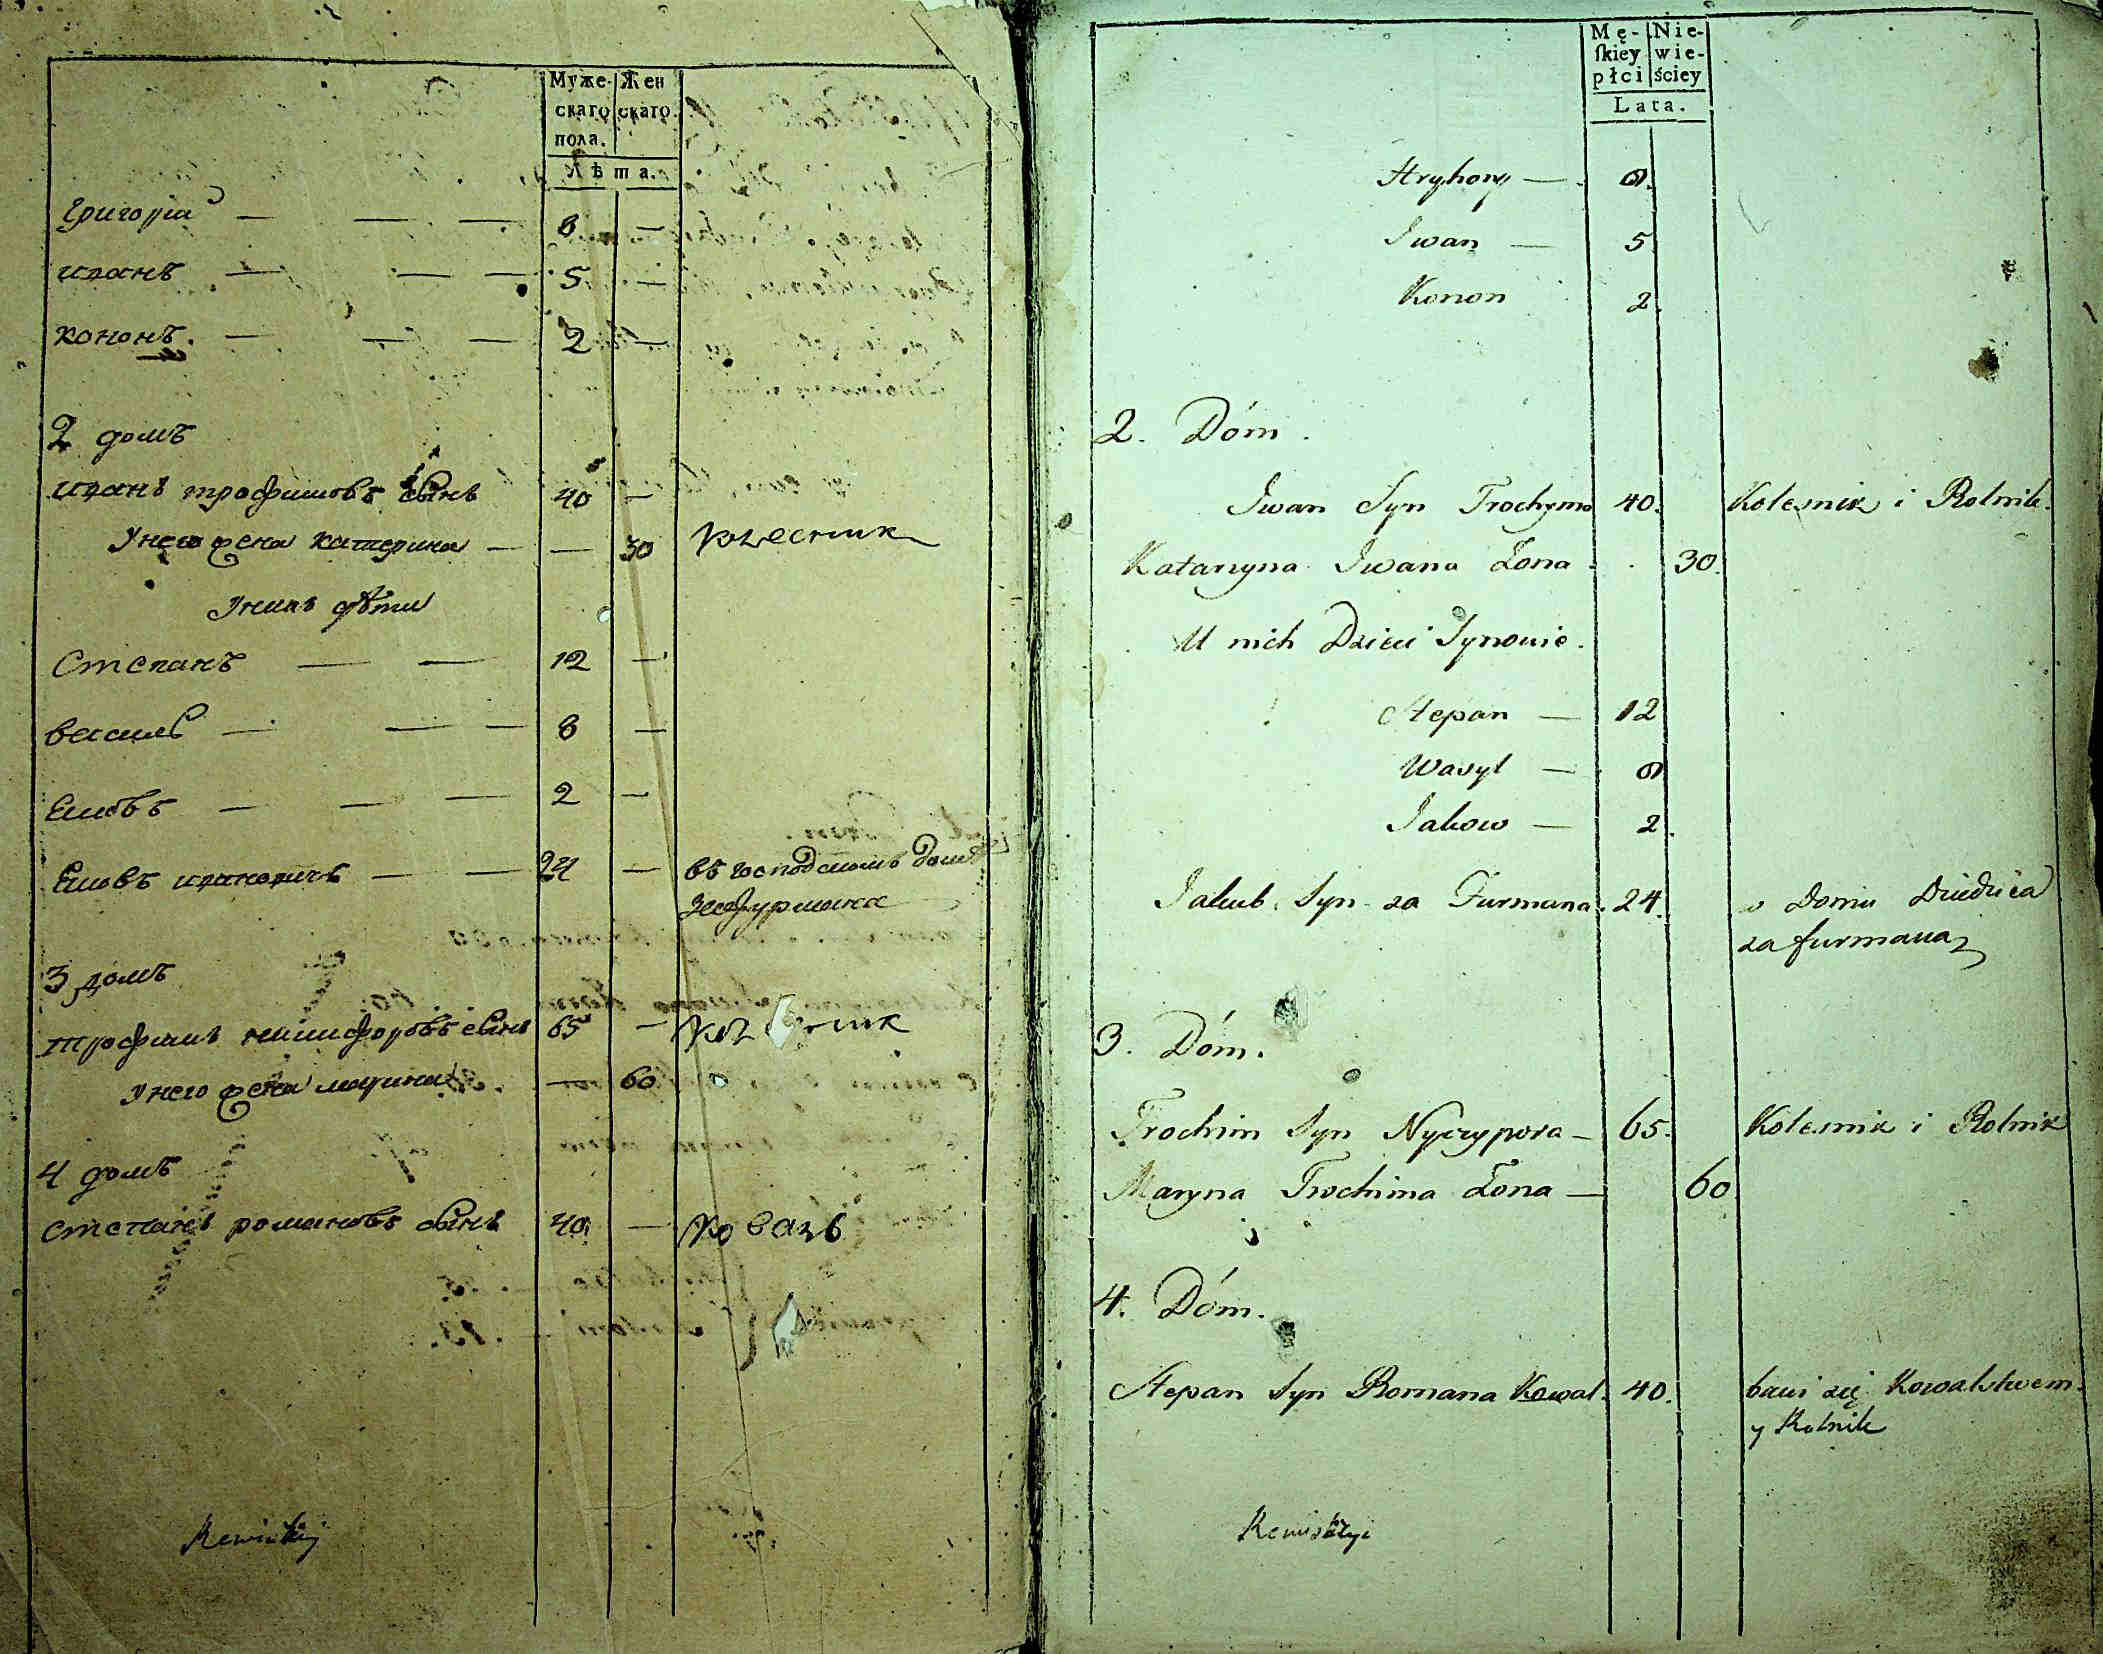 Муже-
скаго
пола.
Жен
скаго.
Лѣта.
Григорiй — — — 8 —
иванъ — — — 5 —
кононъ. — — — 2 —
2 домъ
иванъ трофимовъ сынъ 40 —
У него жена катерина — — 30 колесник
У нихъ дѣти
Степанъ — — 12 —
василь — — — 8 —
Яковъ — — — 2 —
Яковъ ивановичъ — — 24 — въ господскомъ доме
за фурмана
3 домъ
трофимъ никифоровъ сынъ 65 —
У него жена марина — 60
4 домъ
степанъ романовъ сынъ 40 — коваль
Mę-
skiey
płci
Nie-
wie-
ściey
Lata.
Hryhory — 8.
Iwan — 5
Konon 2.
2. Dóm.
Iwan Syn Trochyma 40. Kolesnik i Rolnik.
Katarzyna Iwana Żona . . 30.
U nich Dzieci Synowie.
Stepan — 12
Wasyl — 8
Jakow — 2.
Jakub Syn za Furmana. 24. w Domu Dziedzica
za furmana
3. Dóm.
Trochim Syn Nyczypora — 65. Kolesnik i Rolnik
Maryna Trochima Żona — 60
4. Dóm.
Stepan Syn Romana Kowal. 40. bawi się Kowalstwem.
y Rolnik